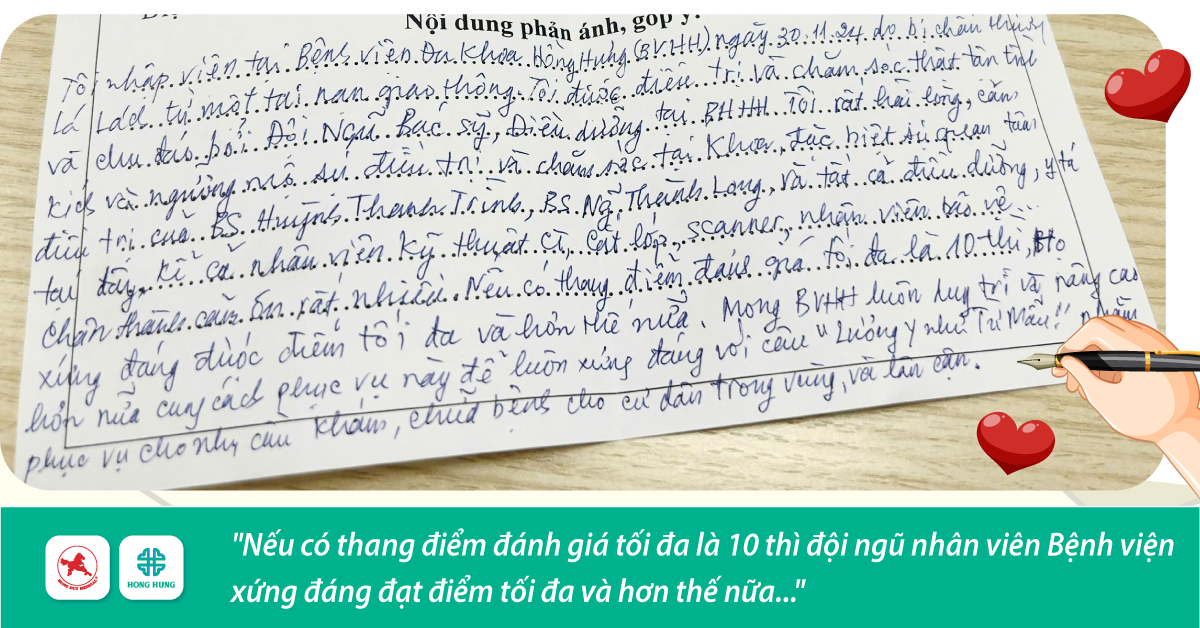 Nội dung phản ánh, góp ý:
Tôi nhập viện tại Bệnh viện Đa Khoa Hồng Hưng (BVHH) ngày 30.11.24 do bị chấn thương
từ một tai nạn giao thông. Tôi được điều trị và chăm sóc thật tận tình
và chu đáo bởi Đội Ngũ Bác sỹ, Điều dưỡng tại BHHH. Tôi rất hài lòng, cảm
kích và ngưỡng mộ sự điều trị và chăm sóc tại Khoa, đặc biệt sự quan tâm
điều trị của BS. Huỳnh Thanh Trình, BS. Ng. Thành Long, và tất cả điều dưỡng, y tá
tại đây, kể cả nhân viên kỹ thuật CT, cắt lớp, scanner, nhân viên bảo vệ...
Chân thành cảm ơn rất nhiều. Nếu có thang điểm đánh giá tối đa là 10 thì, họ
xứng đáng được điểm tối đa và hơn thế nữa. Mong BVHH luôn duy trì và nâng cao
hơn nữa cung cách phục vụ này để luôn xứng đáng với câu "Lương y như Từ Mẫu" nhằm
phục vụ cho nhu cầu khám, chữa bệnh cho cư dân trong vùng, và lân cận.
HONG HUNG
"Nếu có thang điểm đánh giá tối đa là 10 thì đội ngũ nhân viên Bệnh viện
xứng đáng đạt điểm tối đa và hơn thế nữa..."